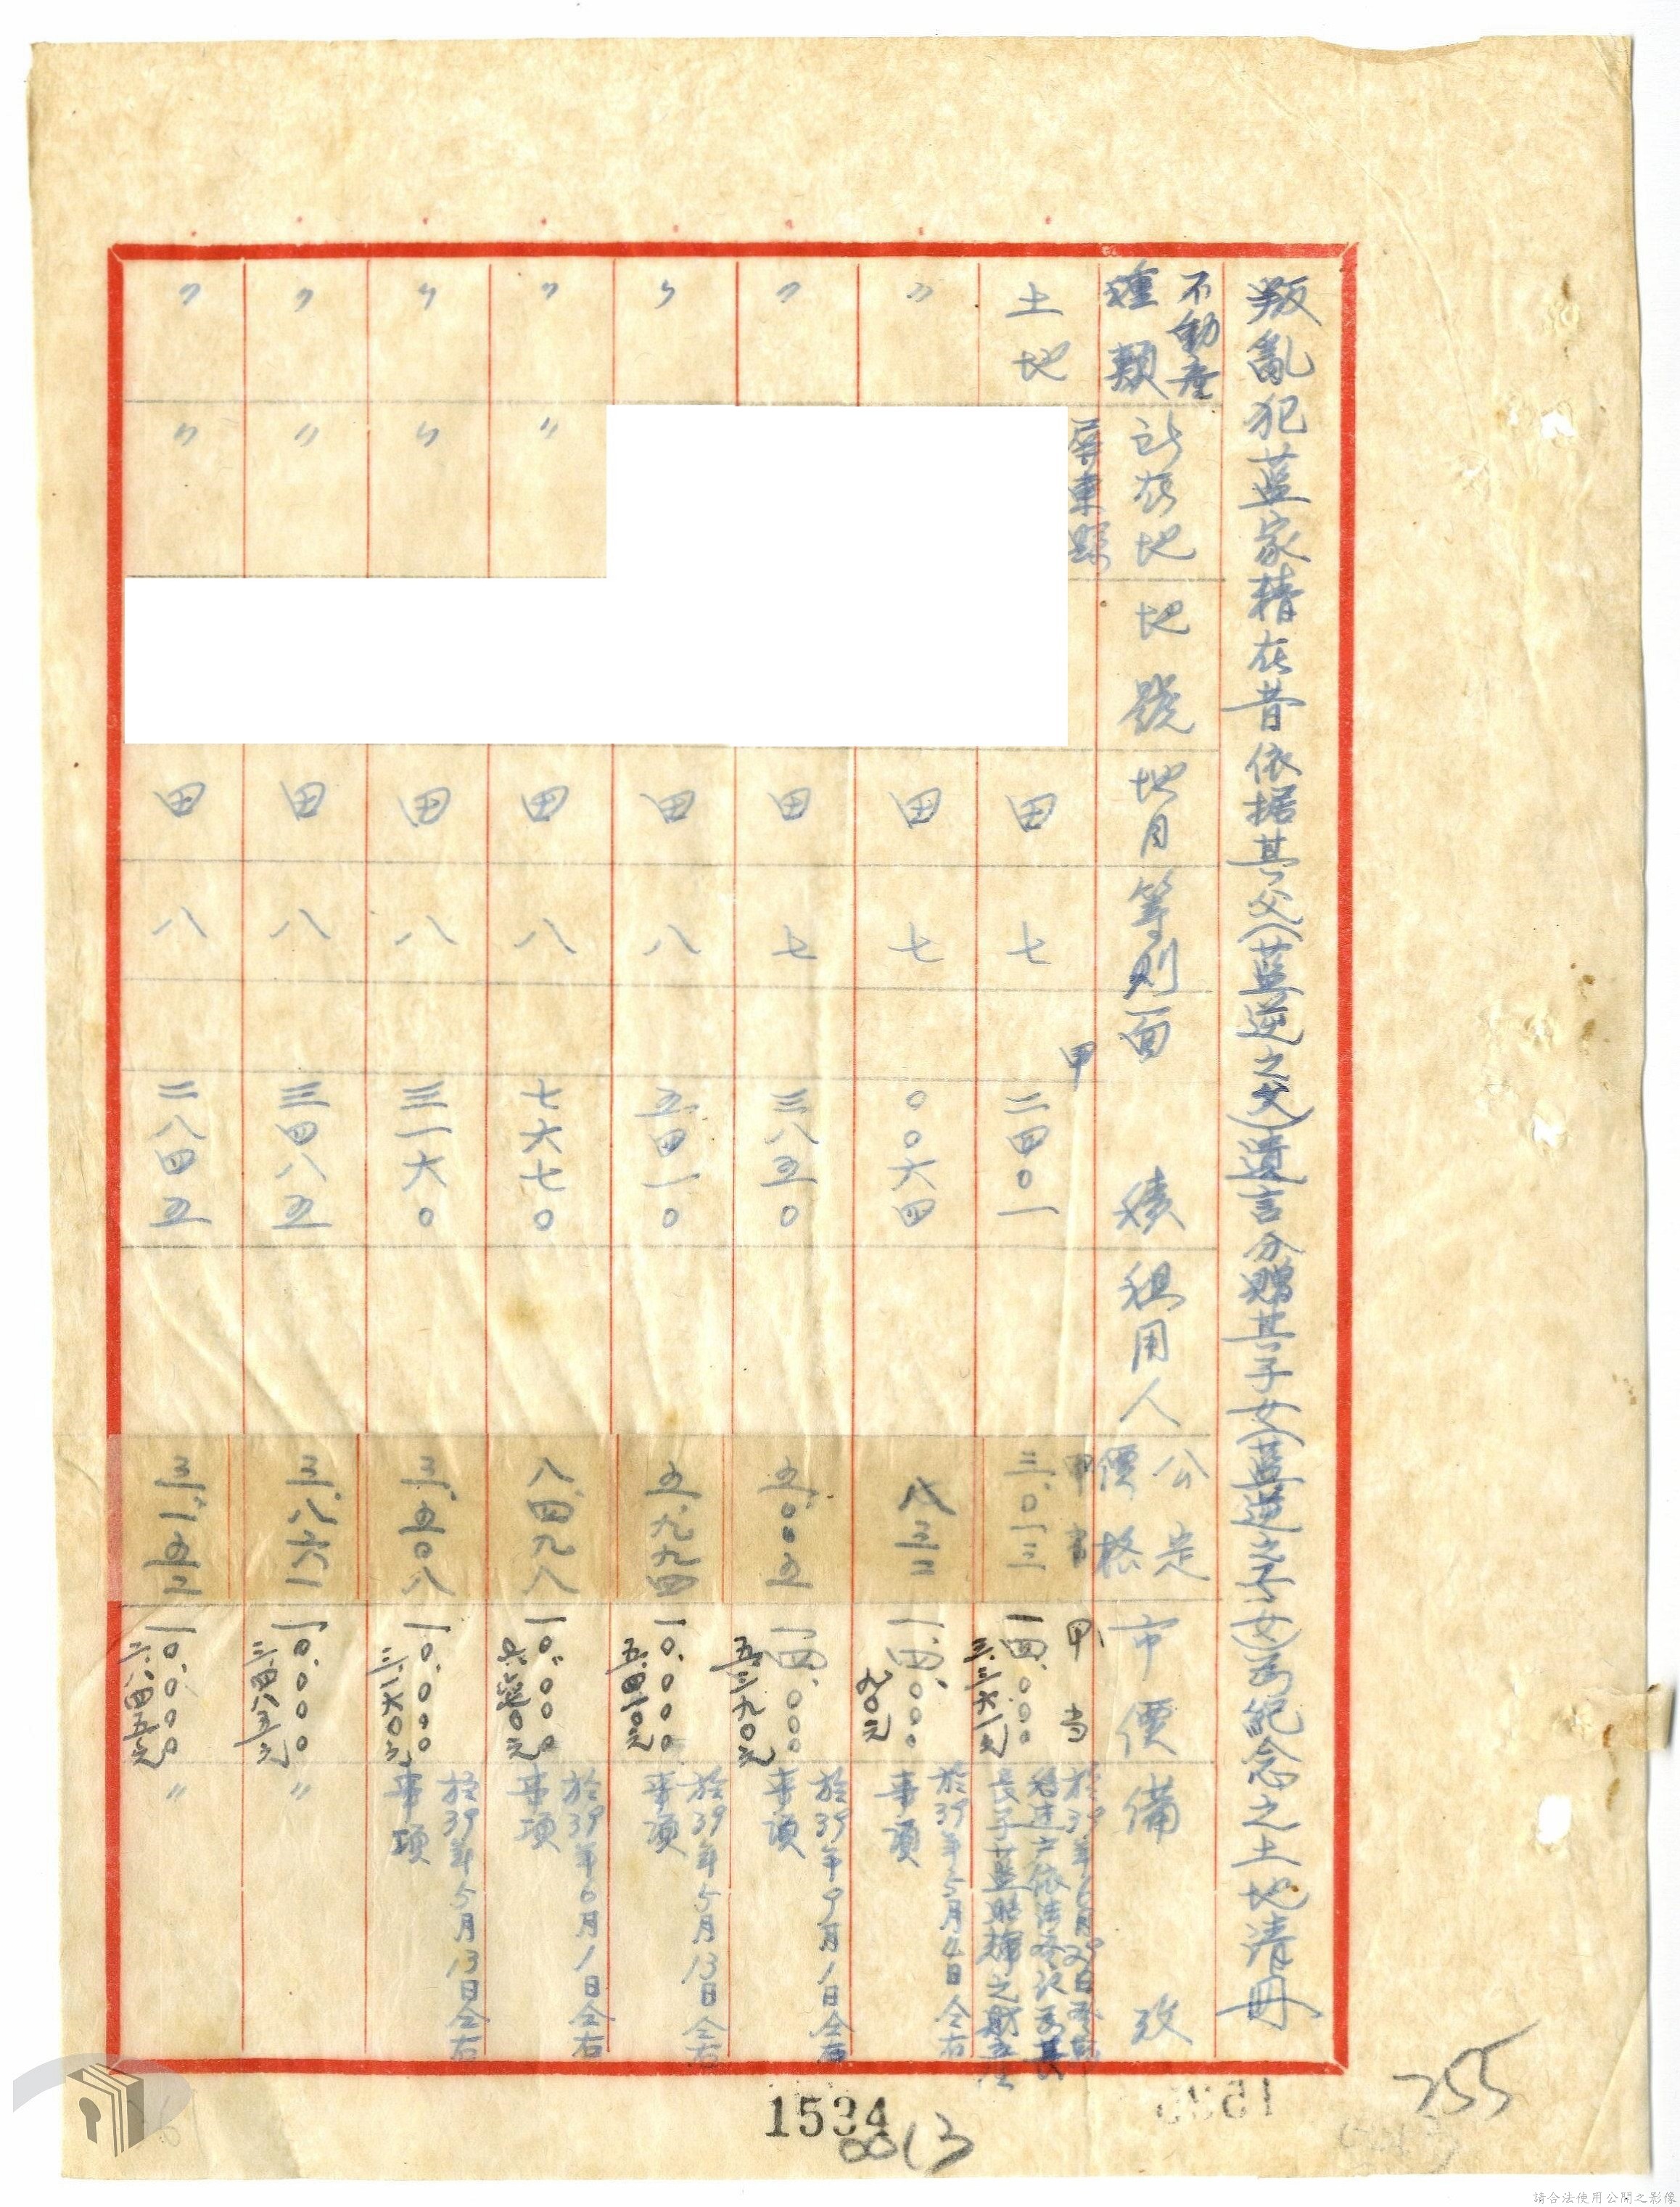 叛亂犯藍家精在昔依据其父(藍逆之父)遺言分贈其子女(藍逆之子女)為紀念之土地清冊
不動產
種類
所在地
地號
地目
等則
面積
租用人
公定
價格
市價
備攷
土地
屏東縣
田
七
甲
二四〇一
甲当
三.〇一三
甲当
一四.〇〇〇
三.三六一元
於39年6月29日
長子藍照輝之財產
〃
田
七
〇〇六四
八三二
一四.〇〇〇
九〇元
於39年5月4日仝右
事項
〃
田
七
三八五〇
五.〇〇五
一四.〇〇〇
五.三九〇元
於39年9月1日仝右
事項
〃
田
八
五四一0
五.九九四
一〇.〇〇〇
五.四一〇元
於39年5月13日仝右
事項
〃
〃
田
八
七六七〇
八.四九八
一〇.〇〇〇
於39年6月1日仝右
事項
〃
〃
田
八
三一六〇
三.五〇八
一〇.〇〇〇
三.一六〇元
於39年5月13日仝右
事項
〃
〃
田
八
三四八五
三.八六一
一〇.〇〇〇
三.四八五元
〃
〃
〃
田
八
二八四五
三.一五二
一〇.〇〇〇
二.八四五元
〃
1534
0013
255
請合法使用公開之影像